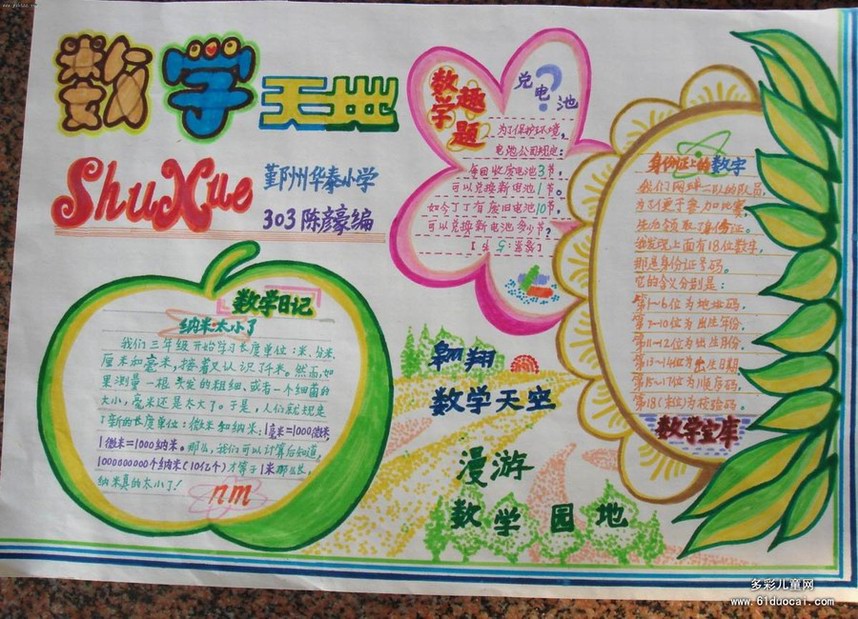 数学天地
ShuXue
鄞州华泰小学
303 陈彦豪编
数学趣题
兑电池
?
为了保护环境,
电池公司规定:
每回收废电池3节,
可以兑换新电池1节。
如今丁丁有废旧电池10节,
可以兑换新电池多少节?
[答案:5节]
身份证上的数字
我们网球二队的队员,
为了便于参加比赛,
先办领取了身份证。
我发现上面有18位数字,
那是身份证号码。
它的含义分别是:
第1~6位为地址码,
第7~10位为出生年份,
第11~12位为出生月份,
第13~14位为出生日期,
第15~17位为顺序码,
第18(末位)为校验码。
数学宝库
数学日记
纳米太小了
我们三年级开始学习长度单位:米、分米、
厘米和毫米,接着又认识了千米。然而,如
果测量一根头发的粗细、或者一个细菌的
大小,毫米还是太大了。于是,人们就规定
了新的长度单位:微米和纳米:1毫米=1000微米,
1微米=1000纳米。那么,我们可以计算后知道,
1000000000个纳米(10亿个)才等于1米那么长,
纳米真的太小了!
nm
翱翔
数学天空
漫游
数学园地
多彩儿童网
www.61duocai.com